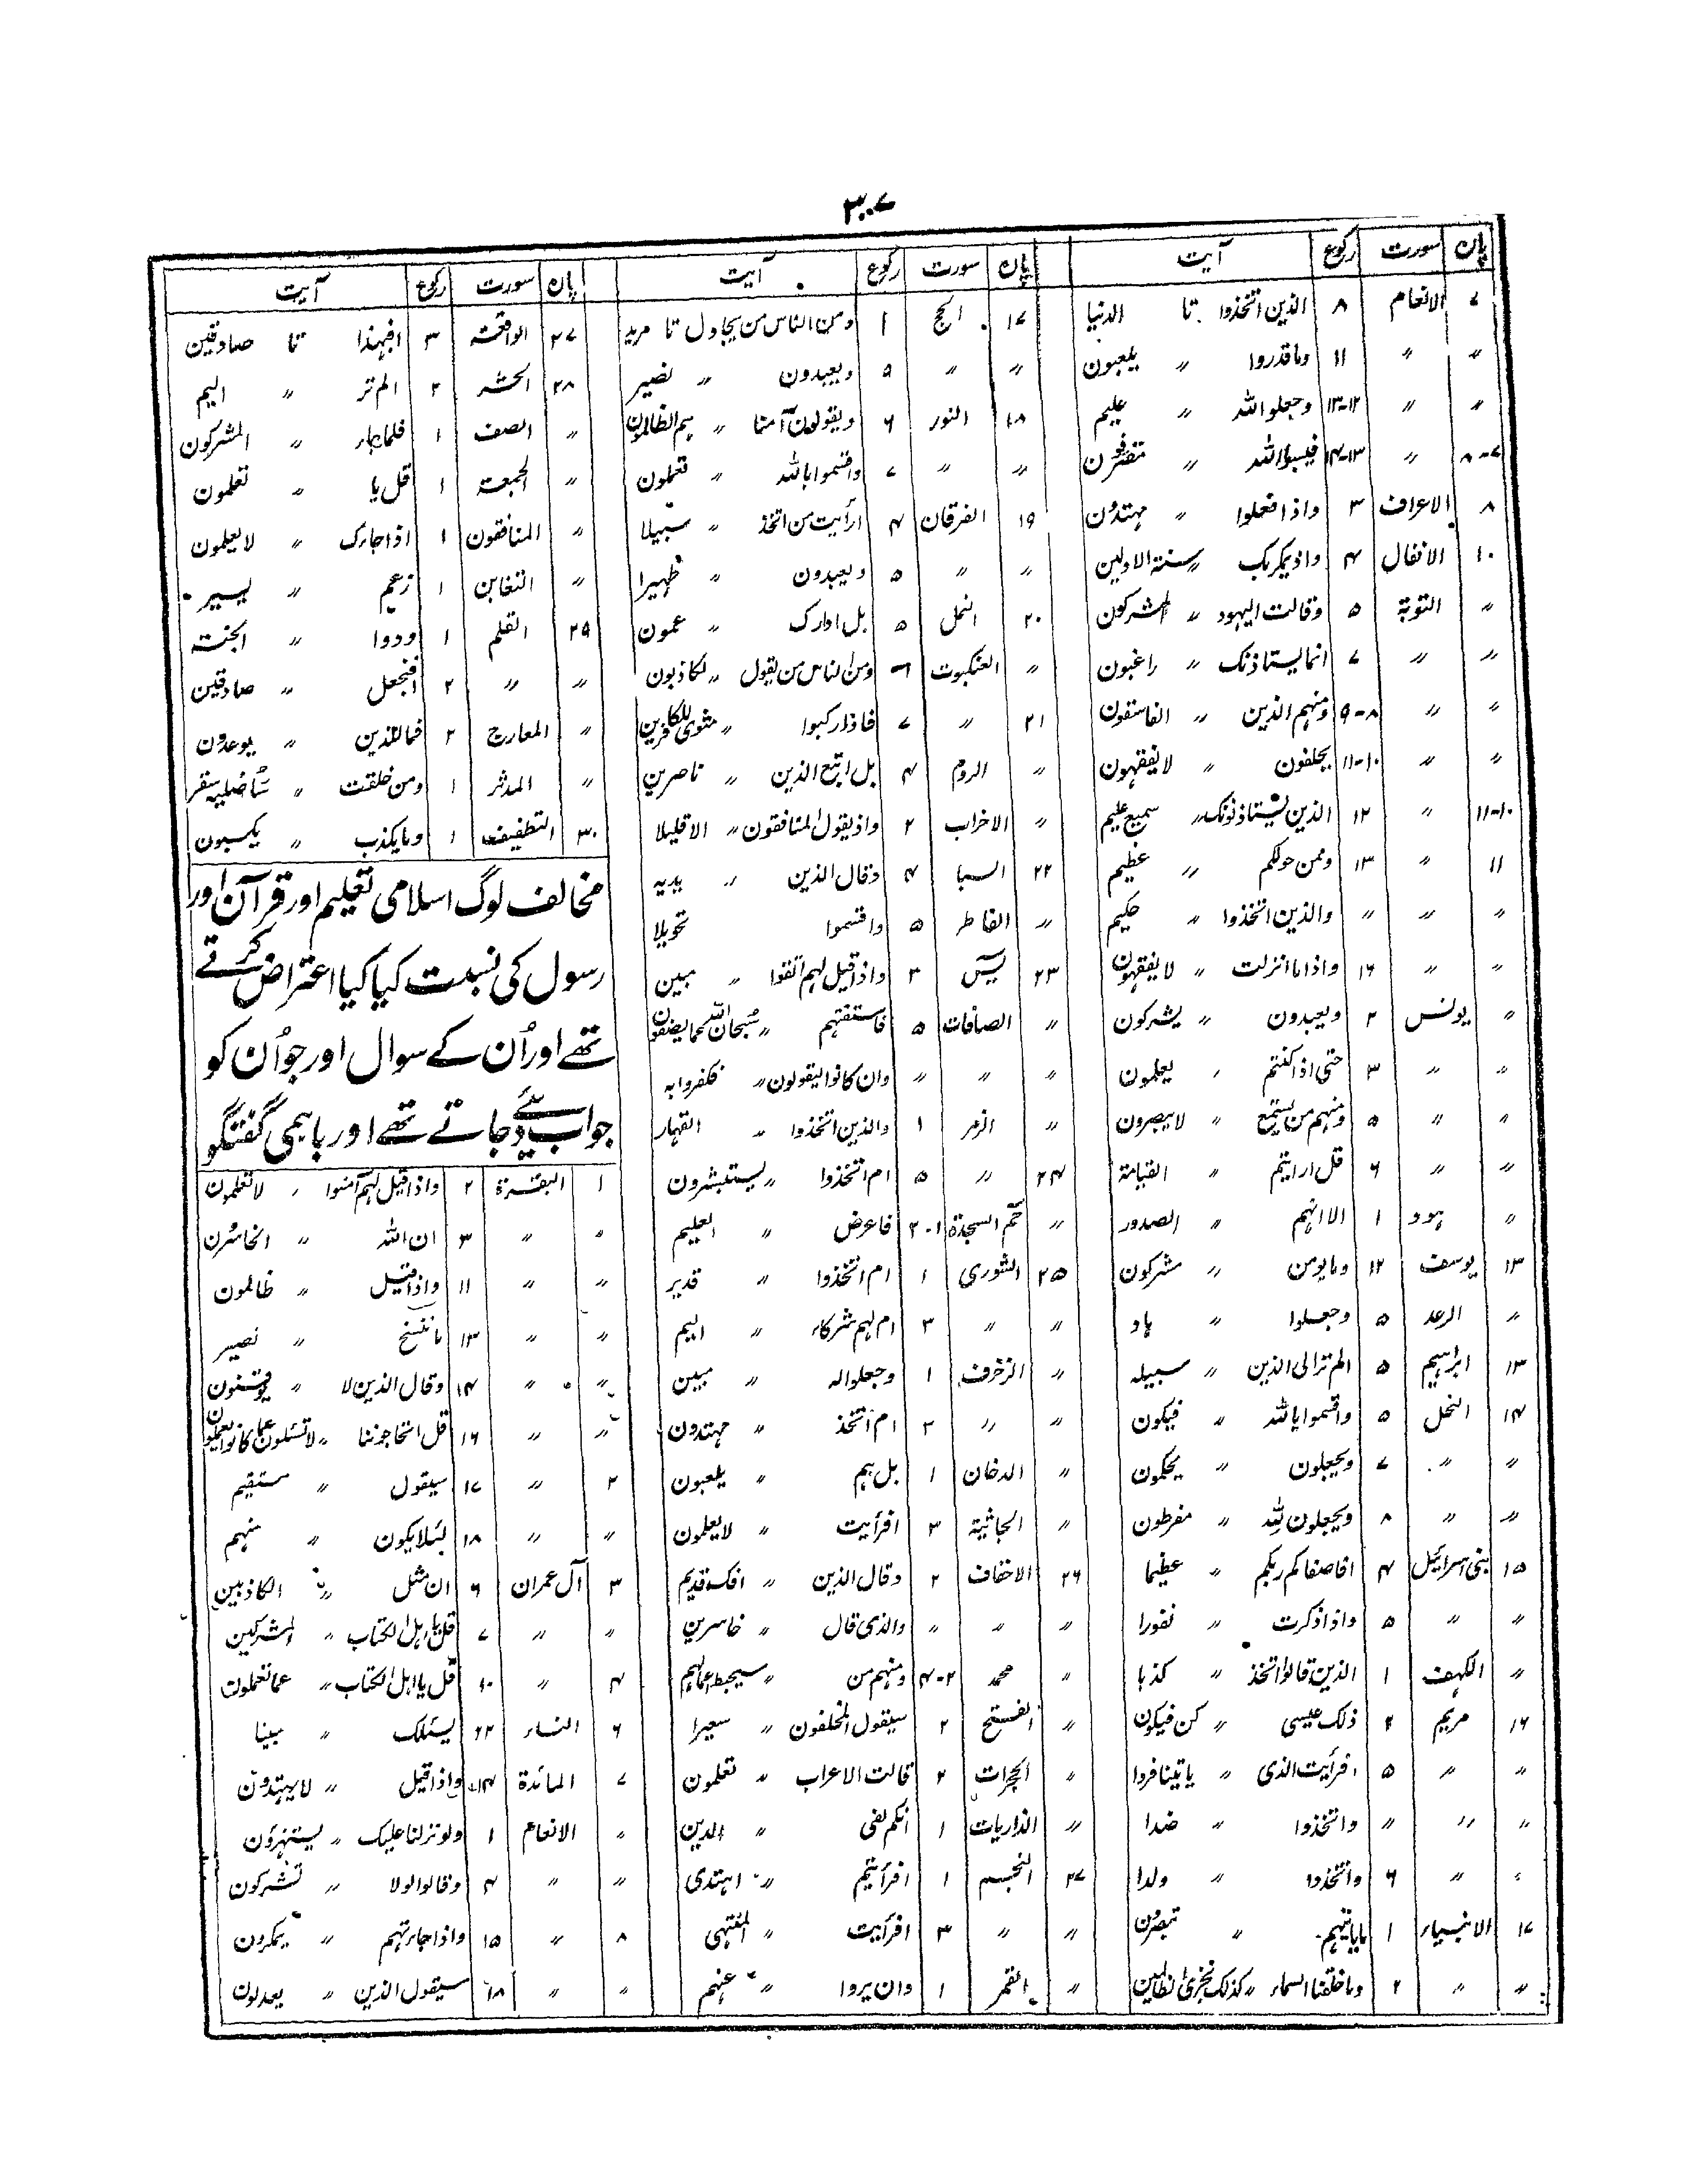 ۳۰۷
پارہ سورت رکوع آیت
۷ الانعام ۸ الذین اتخذوا تا الدنیا
〃 〃 ۱۱ وما قدروا 〃 یلعبون
〃 〃 ۱۲-۱۳ وجعلوا للہ 〃 علیم
۷-۸ 〃 ۱۳-۱۴ فیسبوا اللہ 〃
۸ الاعراف ۳ واذا فعلوا 〃 مهتدون
۱۰ الانفال ۴ واذ یمکربک 〃 سنۃ الاولین
〃 التوبۃ ۵ وقالت الیہود 〃 المشرکون
〃 〃 ۷ انما یستاذنک 〃 راغبون
〃 〃 ۸-۹ ومنہم الذین 〃 الفاسقون
〃 〃 ۱۰-۱۱ یحلفون 〃 لا یفقہون
۱۰-۱۱ 〃 ۱۲ الذین یستاذنونک 〃 سمیع علیم
۱۱ 〃 ۱۳ وممن حولکم 〃 عظیم
〃 〃 〃 والذین اتخذوا 〃 حکیم
〃 〃 ۱۶ واذا ما انزلت 〃 لا یفقہون
〃 یونس ۲ ویعبدون 〃 یشرکون
〃 〃 ۳ حتی اذا کنتم 〃 یعلمون
〃 〃 ۵ ومنہم من یستمع 〃 لا یبصرون
〃 〃 ۶ قل ارایتم 〃 القیامۃ
〃 ہود ۱ الا انہم 〃 الصدور
۱۳ یوسف ۱۲ وما یومن 〃 مشرکون
〃 الرعد ۵ وجعلوا 〃 ہاد
۱۳ ابراہیم ۵ الم تر الی الذین 〃 سبیلہ
۱۴ النحل ۵ واقسموا باللہ 〃 فیکون
〃 〃 ۷ ویجعلون 〃 یحکمون
〃 〃 ۸ ویجعلون للہ 〃 مفرطون
۱۵ بنی اسرائیل ۴ افاصفاکم ربکم 〃 عظیما
〃 〃 ۵ واذا ذکرت 〃 نفورا
〃 الکہف ۱ الذین قالوا اتخذ 〃 کذبا
۱۶ مریم ۲ ذلک عیسی 〃 کن فیکون
〃 〃 ۵ افرأیت الذی 〃 یاتینا فردا
〃 〃 〃 واتخذوا 〃 ضدا
〃 〃 ۶ واتخذوا 〃 ولدا
۱۷ الانبیاء ۱ ما یاتیہم 〃 تبصرون
〃 〃 ۲ وما خلقنا السماء 〃 کذلک نجزی الظالمین
پارہ سورت رکوع آیت
۱۷ الحج ۱ ومن الناس من یجادل تا مرید
〃 〃 ۹ ویعبدون 〃 نصیر
۱۸ النور ۶ ویقولون آمنا 〃 ہم الظالمون
〃 〃 ۷ واقسموا باللہ 〃 تعملون
۱۹ الفرقان ۴ ارأیت من اتخذ 〃 سبیلا
〃 〃 ۵ ویعبدون 〃 ظہیرا
۲۰ النمل ۵ بل ادارک 〃 عمون
〃 العنکبوت ومن الناس من یقول 〃 لکاذبون
۲۱ 〃 ۷ فاذا رکبوا 〃 مثوی للکافرین
〃 الروم ۴ بل اتبع الذین 〃 ناصرین
〃 الاحزاب ۲ واذ یقول المنافقون 〃 الا قلیلا
۲۲ السبا ۴ وقال الذین 〃 یدیہ
〃 الفاطر ۵ واقسموا تحویلا
۲۳ یٰسٓ ۳ واذا قیل لہم اتقوا 〃 مبین
〃 الصافات ۵ فاستفتہم 〃 سبحان اللہ عما یصفون
〃 〃 〃 وان کانوا لیقولون 〃 فکفروا بہ
〃 الزمر ۱ والذین اتخذوا 〃 القہار
۲۴ 〃 ۵ ام اتخذوا 〃 یستبشرون
〃 حٰمٓ السجدۃ ۱-۲ فاعرض 〃 العلیم
۲۵ الشوری ۱ ام اتخذوا 〃 قدیر
〃 〃 ۳ ام لہم شرکاء 〃 الیم
〃 الزخرف ۱ وجعلوا لہ 〃 مبین
〃 〃 ۲ ام اتخذ 〃 مہتدون
〃 الدخان ۱ بل ہم 〃 یلعبون
〃 الجاثیۃ ۳ افرأیت 〃 لا یعلمون
۲۶ الاحقاف ۲ وقال الذین 〃 افک قدیم
〃 〃 〃 والذی قال 〃 خاسرین
〃 محمد ۲-۴ ومنہم من 〃 سیحبط اعمالہم
〃 الفتح ۲ سیقول المخلفون 〃 سعیرا
〃 الحجرات ۲ قالت الاعراب 〃 تعملون
〃 الذاریات ۱ انکم لفی 〃 الدین
۲۷ النجم ۱ افرأیتم 〃 اہتدی
〃 〃 ۳ افرأیت 〃 المنتہی
〃 القمر ۱ وان یروا 〃 عنہم
پارہ سورت رکوع آیت
۲۷ الواقعۃ ۳ افبہذا تا صادقین
۲۸ الحشر ۲ الم تر 〃 الیم
〃 الصف ۱ فلما جاء 〃 المشرکون
〃 الجمعۃ ۱ قل یا 〃 تعلمون
〃 المنافقون ۱ اذا جاءک 〃 لا یعلمون
〃 التغابن ۱ زعم 〃 یسیر
۲۹ القلم ۱ ودوا 〃 الجنۃ
〃 〃 ۲ افنجعل 〃 صادقین
〃 المعارج ۲ فمال الذین 〃 یوعدون
〃 المدثر ۱ ومن خلقت 〃 ساصلیہ سقر
۳۰ التطفیف ۱ وما یکذب 〃 یکسبون
مخالف لوگ اسلامی تعلیم اور قرآن اور
رسول کی نسبت کیا کیا اعتراض کرتے
تھے اور اُن کے سوال اور جو اُن کو
جواب دیئے جاتے تھے اور باہمی گفتگو
۱ البقرۃ ۲ واذا قیل لہم آمنوا 〃 لا تعلمون
〃 〃 ۳ ان اللہ 〃 الخاسرون
〃 〃 ۱۱ واذا قیل 〃 ظالمون
〃 〃 ۱۳ ما ننسخ 〃 نصیر
〃 〃 ۱۴ وقال الذین لا 〃 یوقنون
〃 〃 ۱۶ قل اتحاجوننا 〃 لا تسئلون عما کانوا یعملون
۲ 〃 ۱۷ سیقول 〃 مستقیم
〃 〃 ۱۸ لئلا یکون 〃 منہم
۳ آل عمران ۶ ان مثل 〃 الکاذبین
〃 〃 ۷ قل یا اہل الکتاب 〃 المشرکین
۴ 〃 ۱۰ قل یا اہل الکتاب 〃 عما تعملون
۶ النساء ۲۲ یسئلک 〃 مبینا
۷ المائدۃ ۱۴ واذا قیل 〃 لا یہتدون
〃 الانعام ۱ ولو نزلنا علیک 〃 یستہزؤن
〃 〃 ۴ وقالوا لولا 〃 تشرکون
۸ 〃 ۱۵ واذا جاءتہم 〃 یمکرون
〃 〃 ۱۸ سیقول الذین 〃 یعدلون